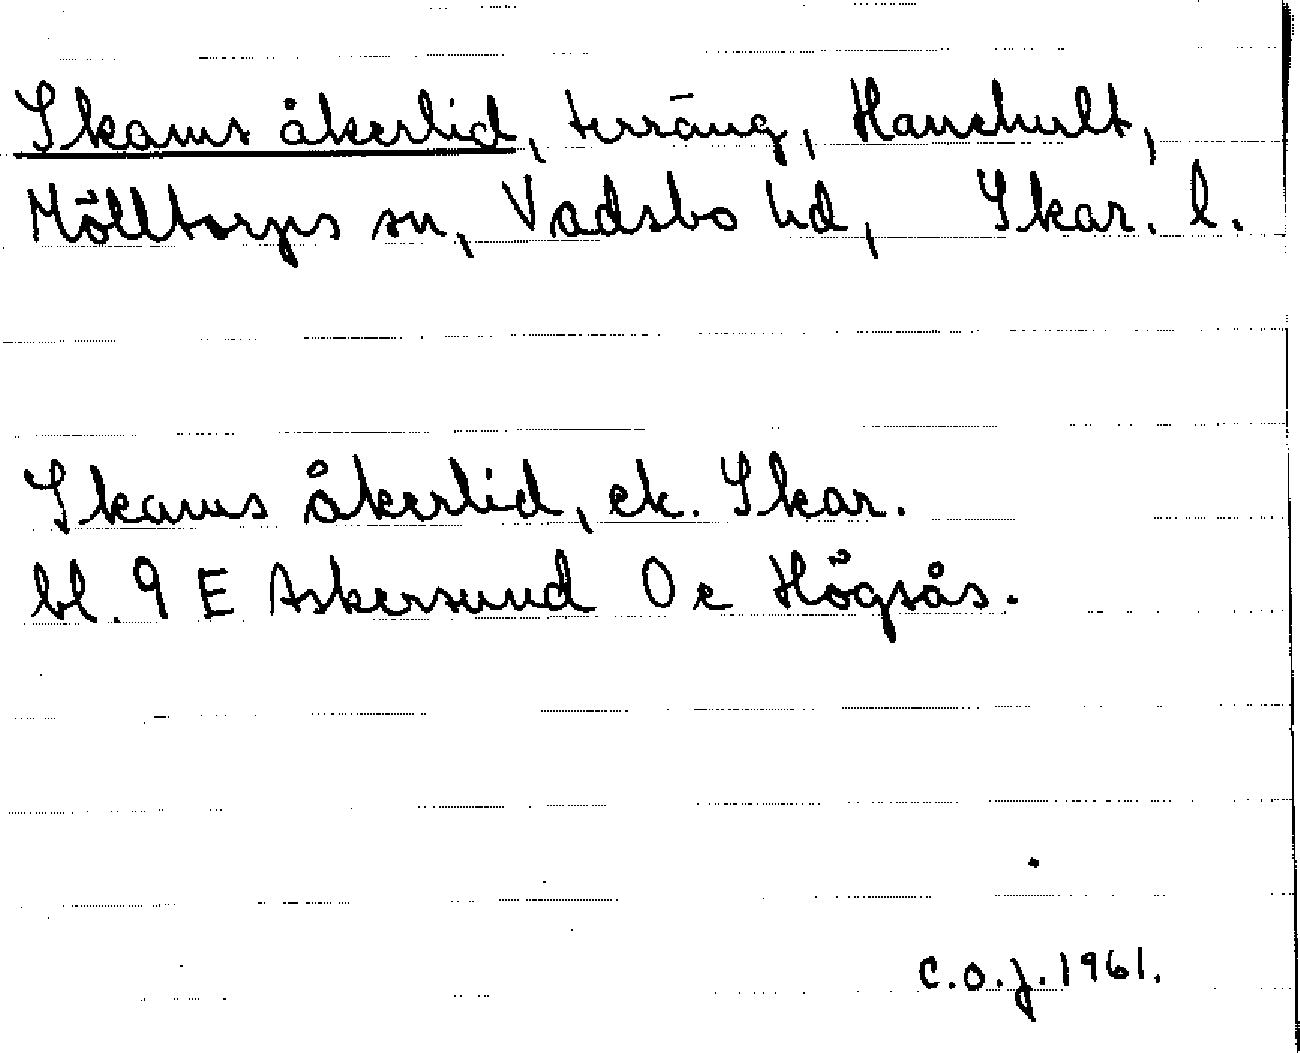 Skams åkerlid, terräng, Hanehult,
Mölltorps sn, Vadsbo hd, Skar. l.
Skams åkerlid, ek. Skar.
bl. 9 E Askersund 0 e Högsås.
C.O.J. 1961.